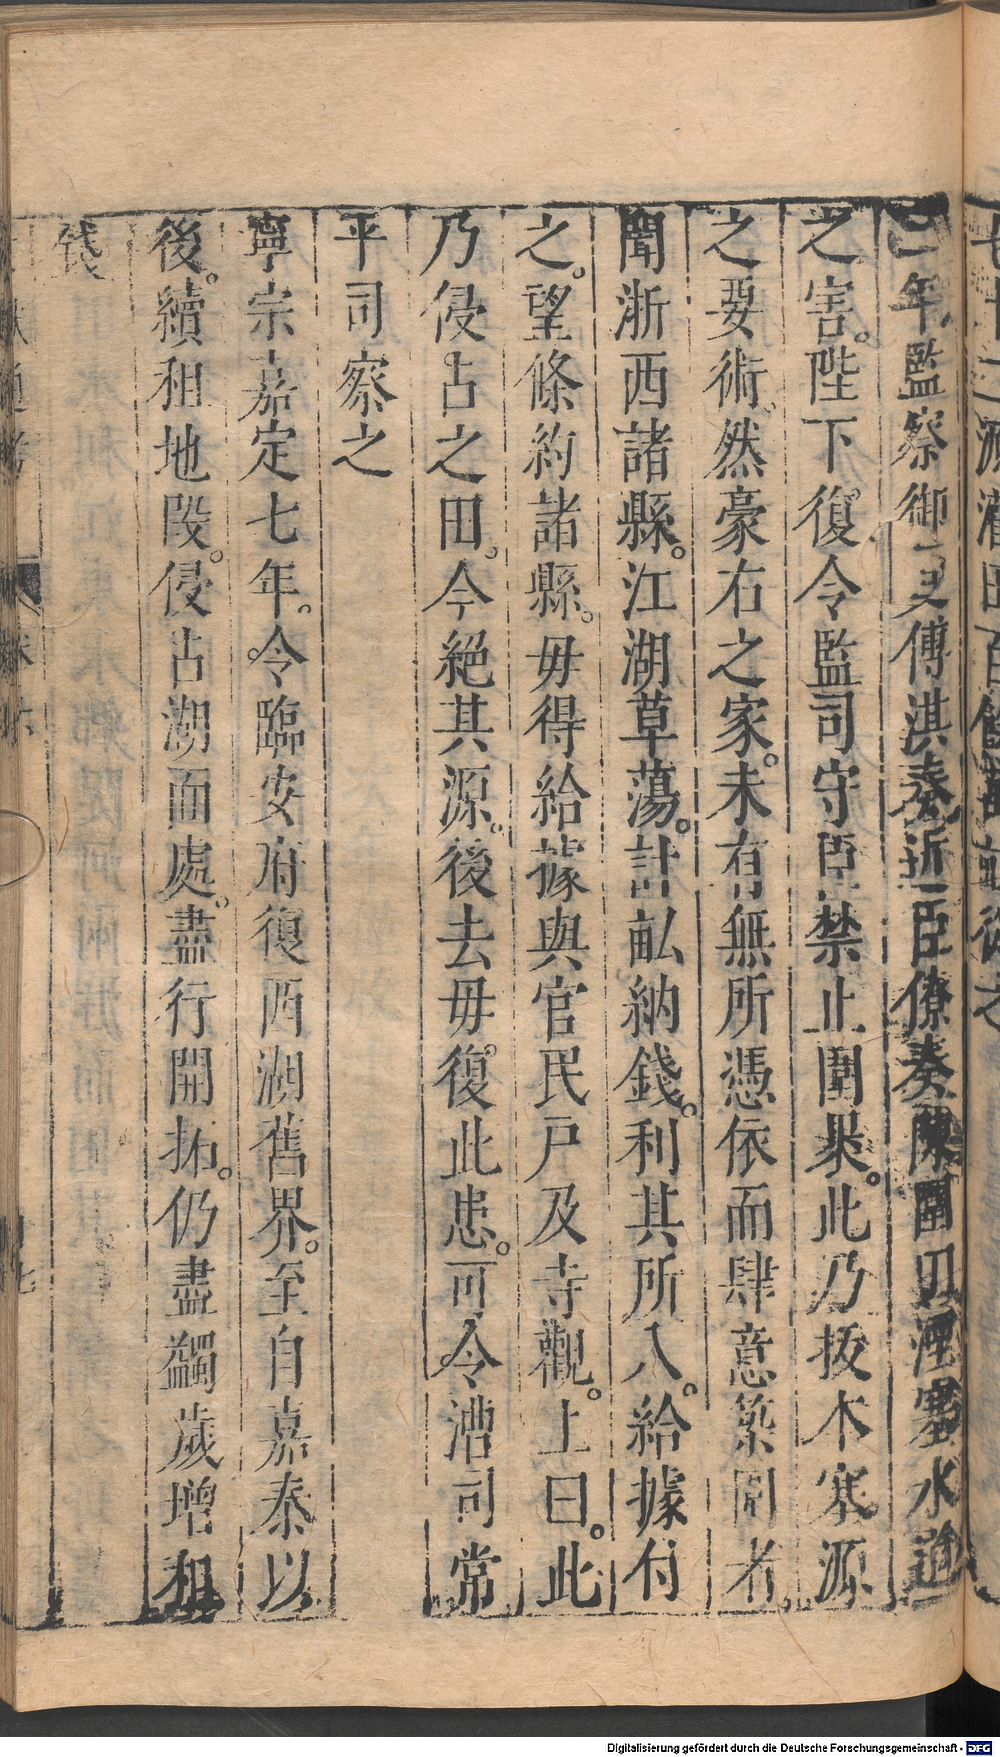 二年監察御史傅淇奏近臣僚奏陳圍田湮塞水道
之害。陛下復令監司守臣禁止圍裹。此乃拔木塞源
之要術。然豪右之家。未有無所憑依而肆意築圍者。
聞浙西諸縣。江湖草蕩。計畝納錢。利其所入。給據付
之。望條約諸縣。毋得給據與官民戶及寺觀。上曰。此
乃侵占之田。今絕其源。後去毋復此患。可令漕司常
平司察之
寧宗嘉定七年。令臨安府復西湖舊界。至自嘉泰以
後。續租地段。侵占湖面處。盡行開拓。仍盡蠲歲增租
錢
Digitalisierung gefördert durch die Deutsche Forschungsgemeinschaft - DFG